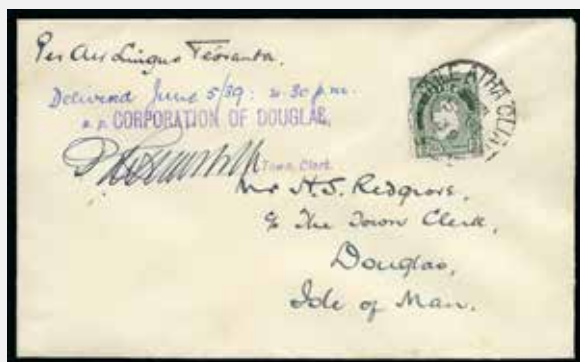 Per Aer Lingus Teóranta.
Delivered June 5/39: 4.30 p.m.
p.p. CORPORATION OF DOUGLAS,
Town Clerk.
BAILE ATHA CLIATH
Mr H.S. Redgrove,
℅ The Town Clerk,
Douglas,
Isle of Man.